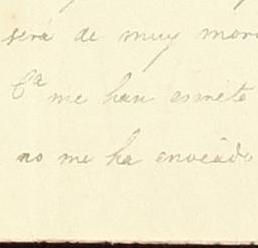 será de muy
Cª me han escrito
no me ha enviado